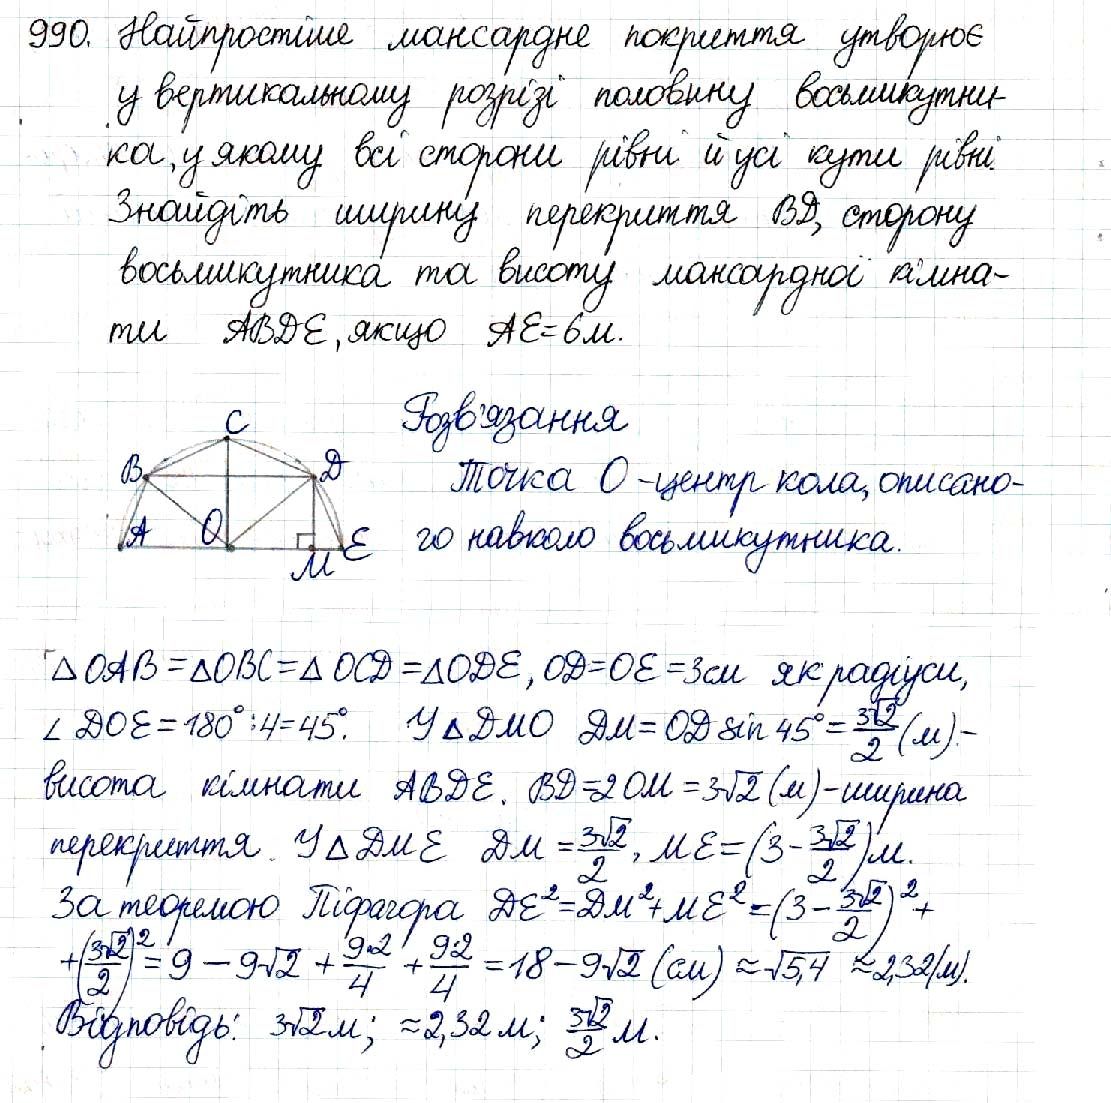 990. Найпростіше мансардне покриття утворює
у вертикальному розрізі половину восьмикутни-
ка, у якому всі сторони рівні й усі кути рівні.
Знайдіть ширину перекриття BD, сторону
восьмикутника та висоту мансардної кімна-
ти ABDE, якщо AE=6м.
Розв'язання
C
B
D
A
O
M
E
Точка O - центр кола, описано-
го навколо восьмикутника.
△OAB = △OBC = △OCD = △ODE, OD=OE=3см як радіуси,
∠DOE = 180° : 4 = 45°. У △DMO DM = OD sin 45° = 3√2/2 (м) -
висота кімнати ABDE. BD = 2OM = 3√2 (м) - ширина
перекриття. У △DME DM = 3√2/2, ME = (3 - 3√2/2) м.
За теоремою Піфагора DE² = DM² + ME² = (3 - 3√2/2)² +
+ (3√2/2)² = 9 - 9√2 + 9·2/4 + 9·2/4 = 18 - 9√2 (см) ≈ √5,4 ≈ 2,32 (м).
Відповідь: 3√2 м; ≈ 2,32 м; 3√2/2 м.